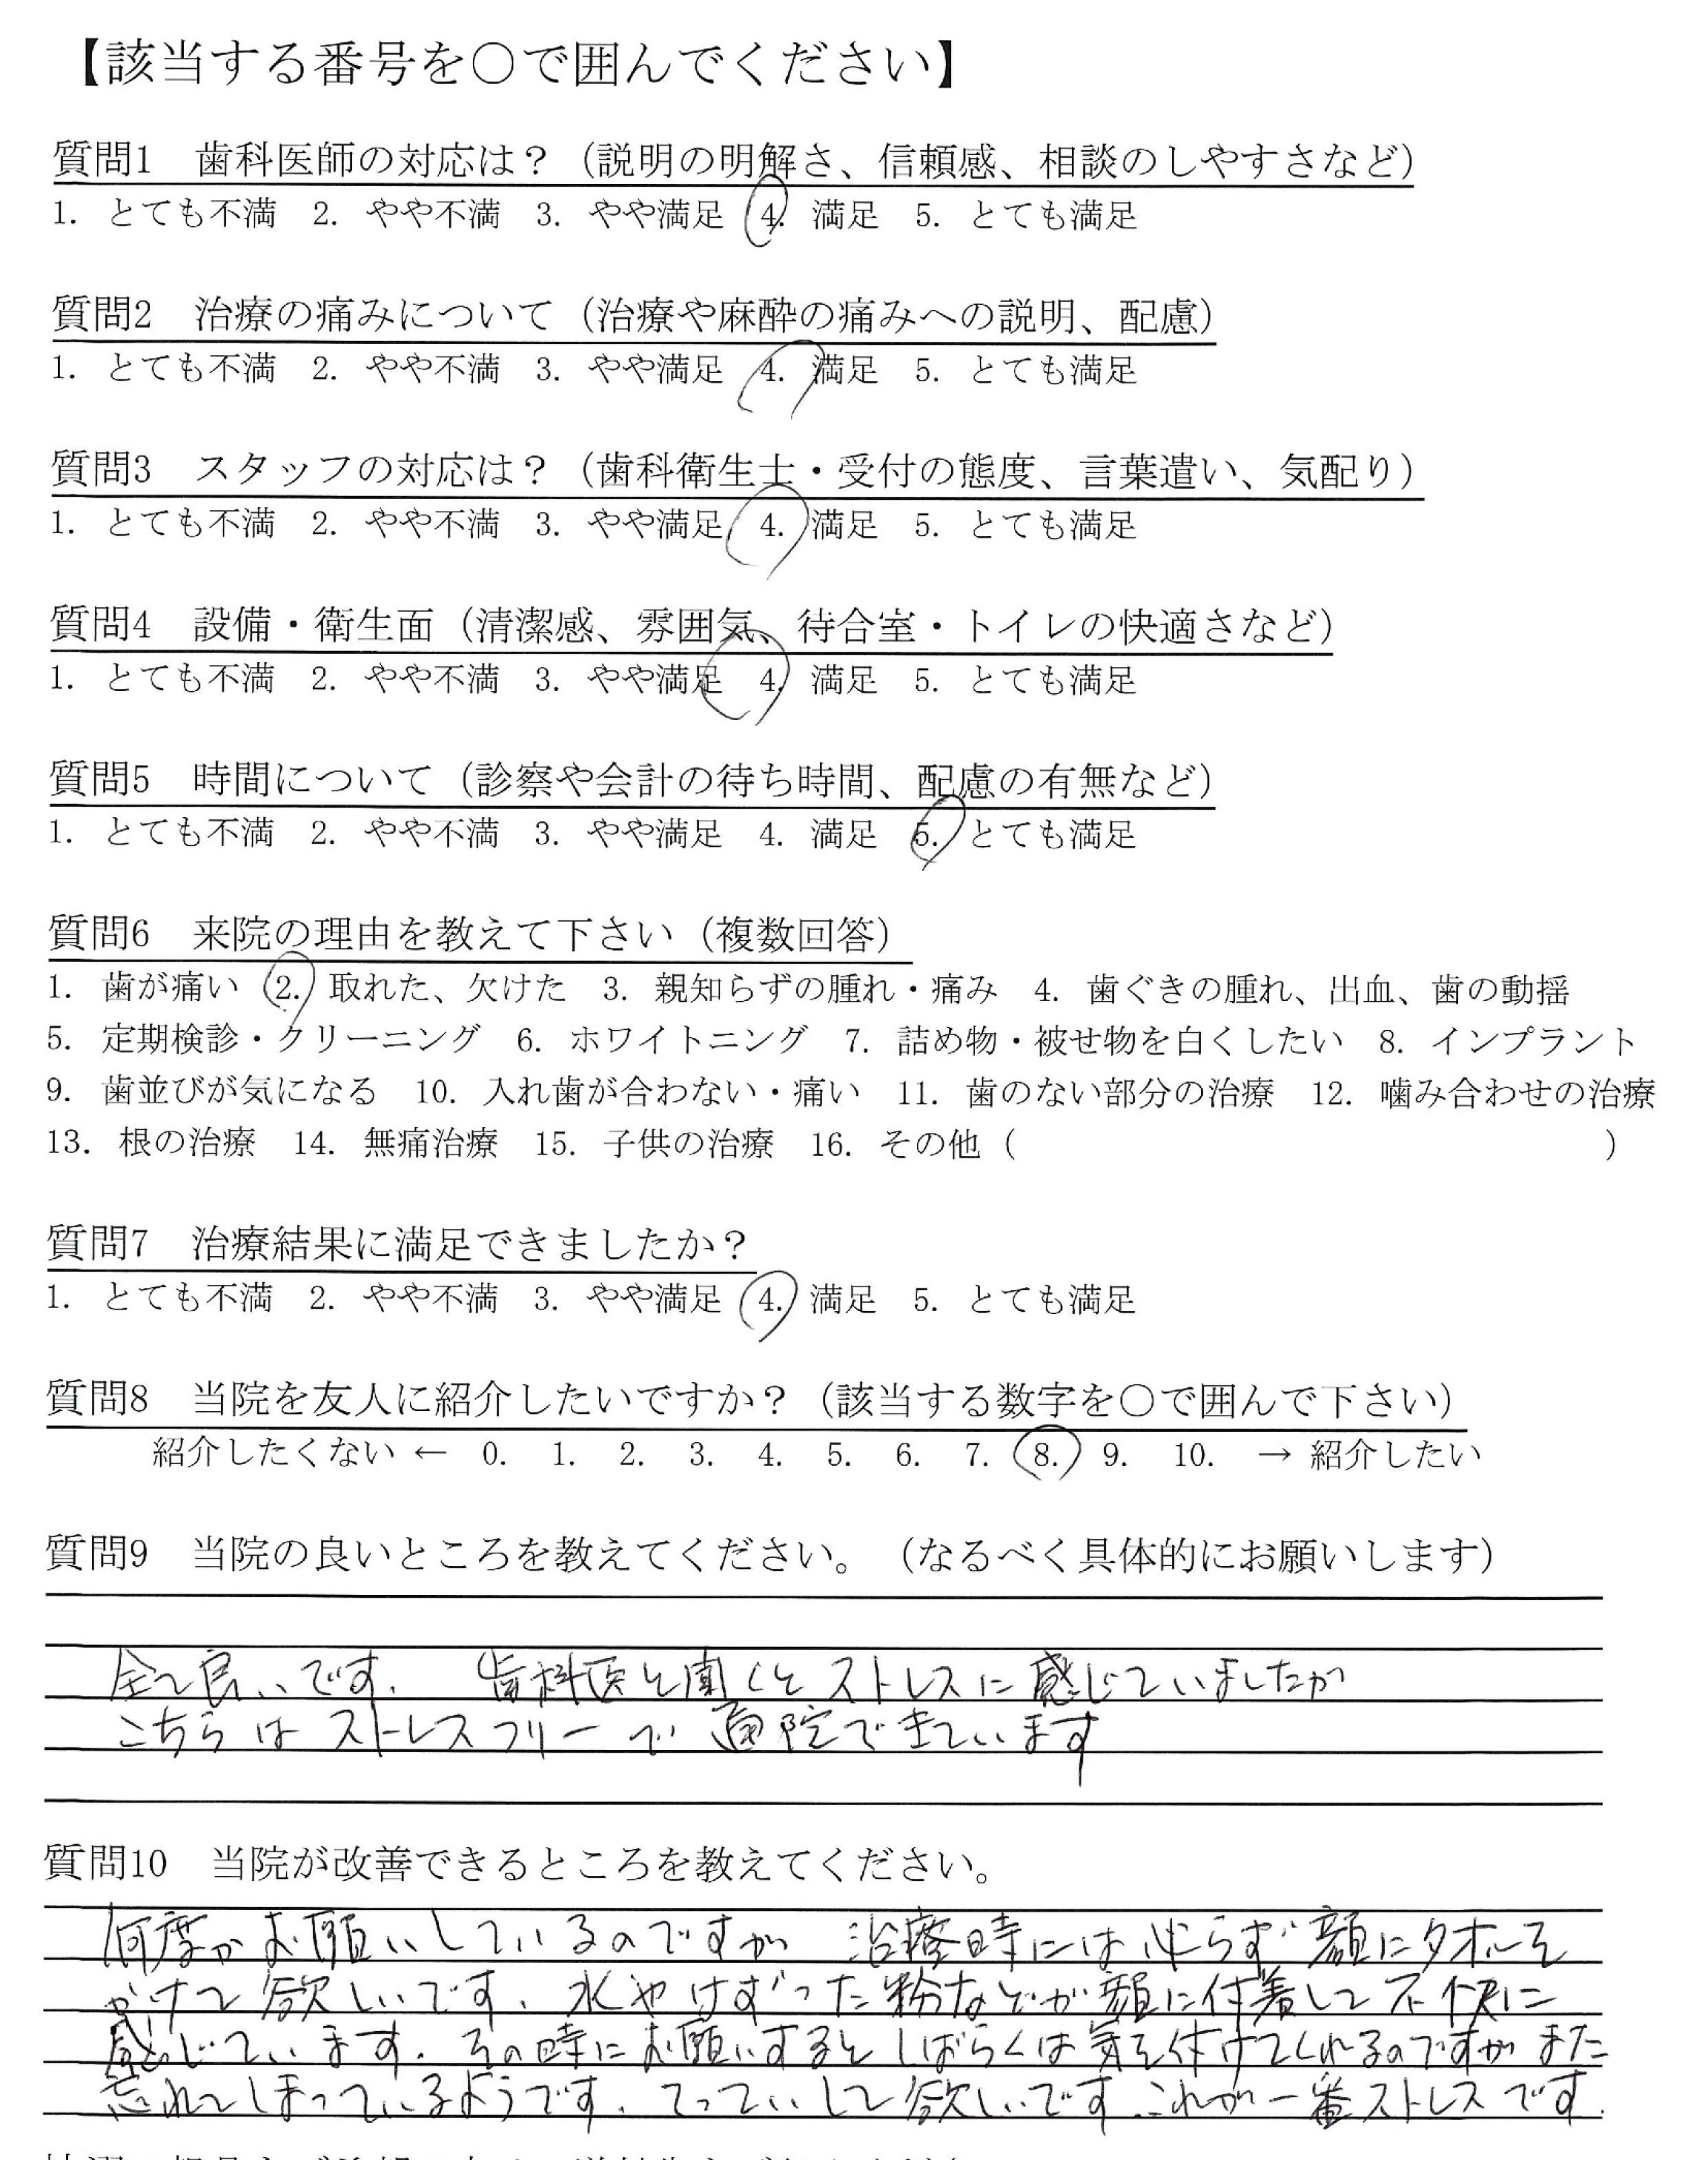 【該当する番号を〇で囲んでください】
質問1　歯科医師の対応は？（説明の明解さ、信頼感、相談のしやすさなど）
1. とても不満　2. やや不満　3. やや満足　4. 満足　5. とても満足
質問2　治療の痛みについて（治療や麻酔の痛みへの説明、配慮）
1. とても不満　2. やや不満　3. やや満足　4. 満足　5. とても満足
質問3　スタッフの対応は？（歯科衛生士・受付の態度、言葉遣い、気配り）
1. とても不満　2. やや不満　3. やや満足　4. 満足　5. とても満足
質問4　設備・衛生面（清潔感、雰囲気、待合室・トイレの快適さなど）
1. とても不満　2. やや不満　3. やや満足　4. 満足　5. とても満足
質問5　時間について（診察や会計の待ち時間、配慮の有無など）
1. とても不満　2. やや不満　3. やや満足　4. 満足　5. とても満足
質問6　来院の理由を教えて下さい（複数回答）
1. 歯が痛い　2. 取れた、欠けた　3. 親知らずの腫れ・痛み　4. 歯ぐきの腫れ、出血、歯の動揺
5. 定期検診・クリーニング　6. ホワイトニング　7. 詰め物・被せ物を白くしたい　8. インプラント
9. 歯並びが気になる　10. 入れ歯が合わない・痛い　11. 歯のない部分の治療　12. 噛み合わせの治療
13. 根の治療　14. 無痛治療　15. 子供の治療　16. その他（　　　　　　　　　　）
質問7　治療結果に満足できましたか？
1. とても不満　2. やや不満　3. やや満足　4. 満足　5. とても満足
質問8　当院を友人に紹介したいですか？（該当する数字を〇で囲んで下さい）
紹介したくない ← 0. 1. 2. 3. 4. 5. 6. 7. 8. 9. 10. → 紹介したい
質問9　当院の良いところを教えてください。（なるべく具体的にお願いします）
全て良いです。　歯科医と聞くとストレスに感じていましたが
こちらはストレスフリーで通院できています
質問10　当院が改善できるところを教えてください。
何度かお願いしているのですが　治療時には必らず顔にタオルを
かけて欲しいです。水やけずった粉などが顔に付着して不快に
感じています。その時にお願いするとしばらくは気を付けてくれるのですがまた
忘れてしまっているようです。てっていして欲しいです。これが一番ストレスです。